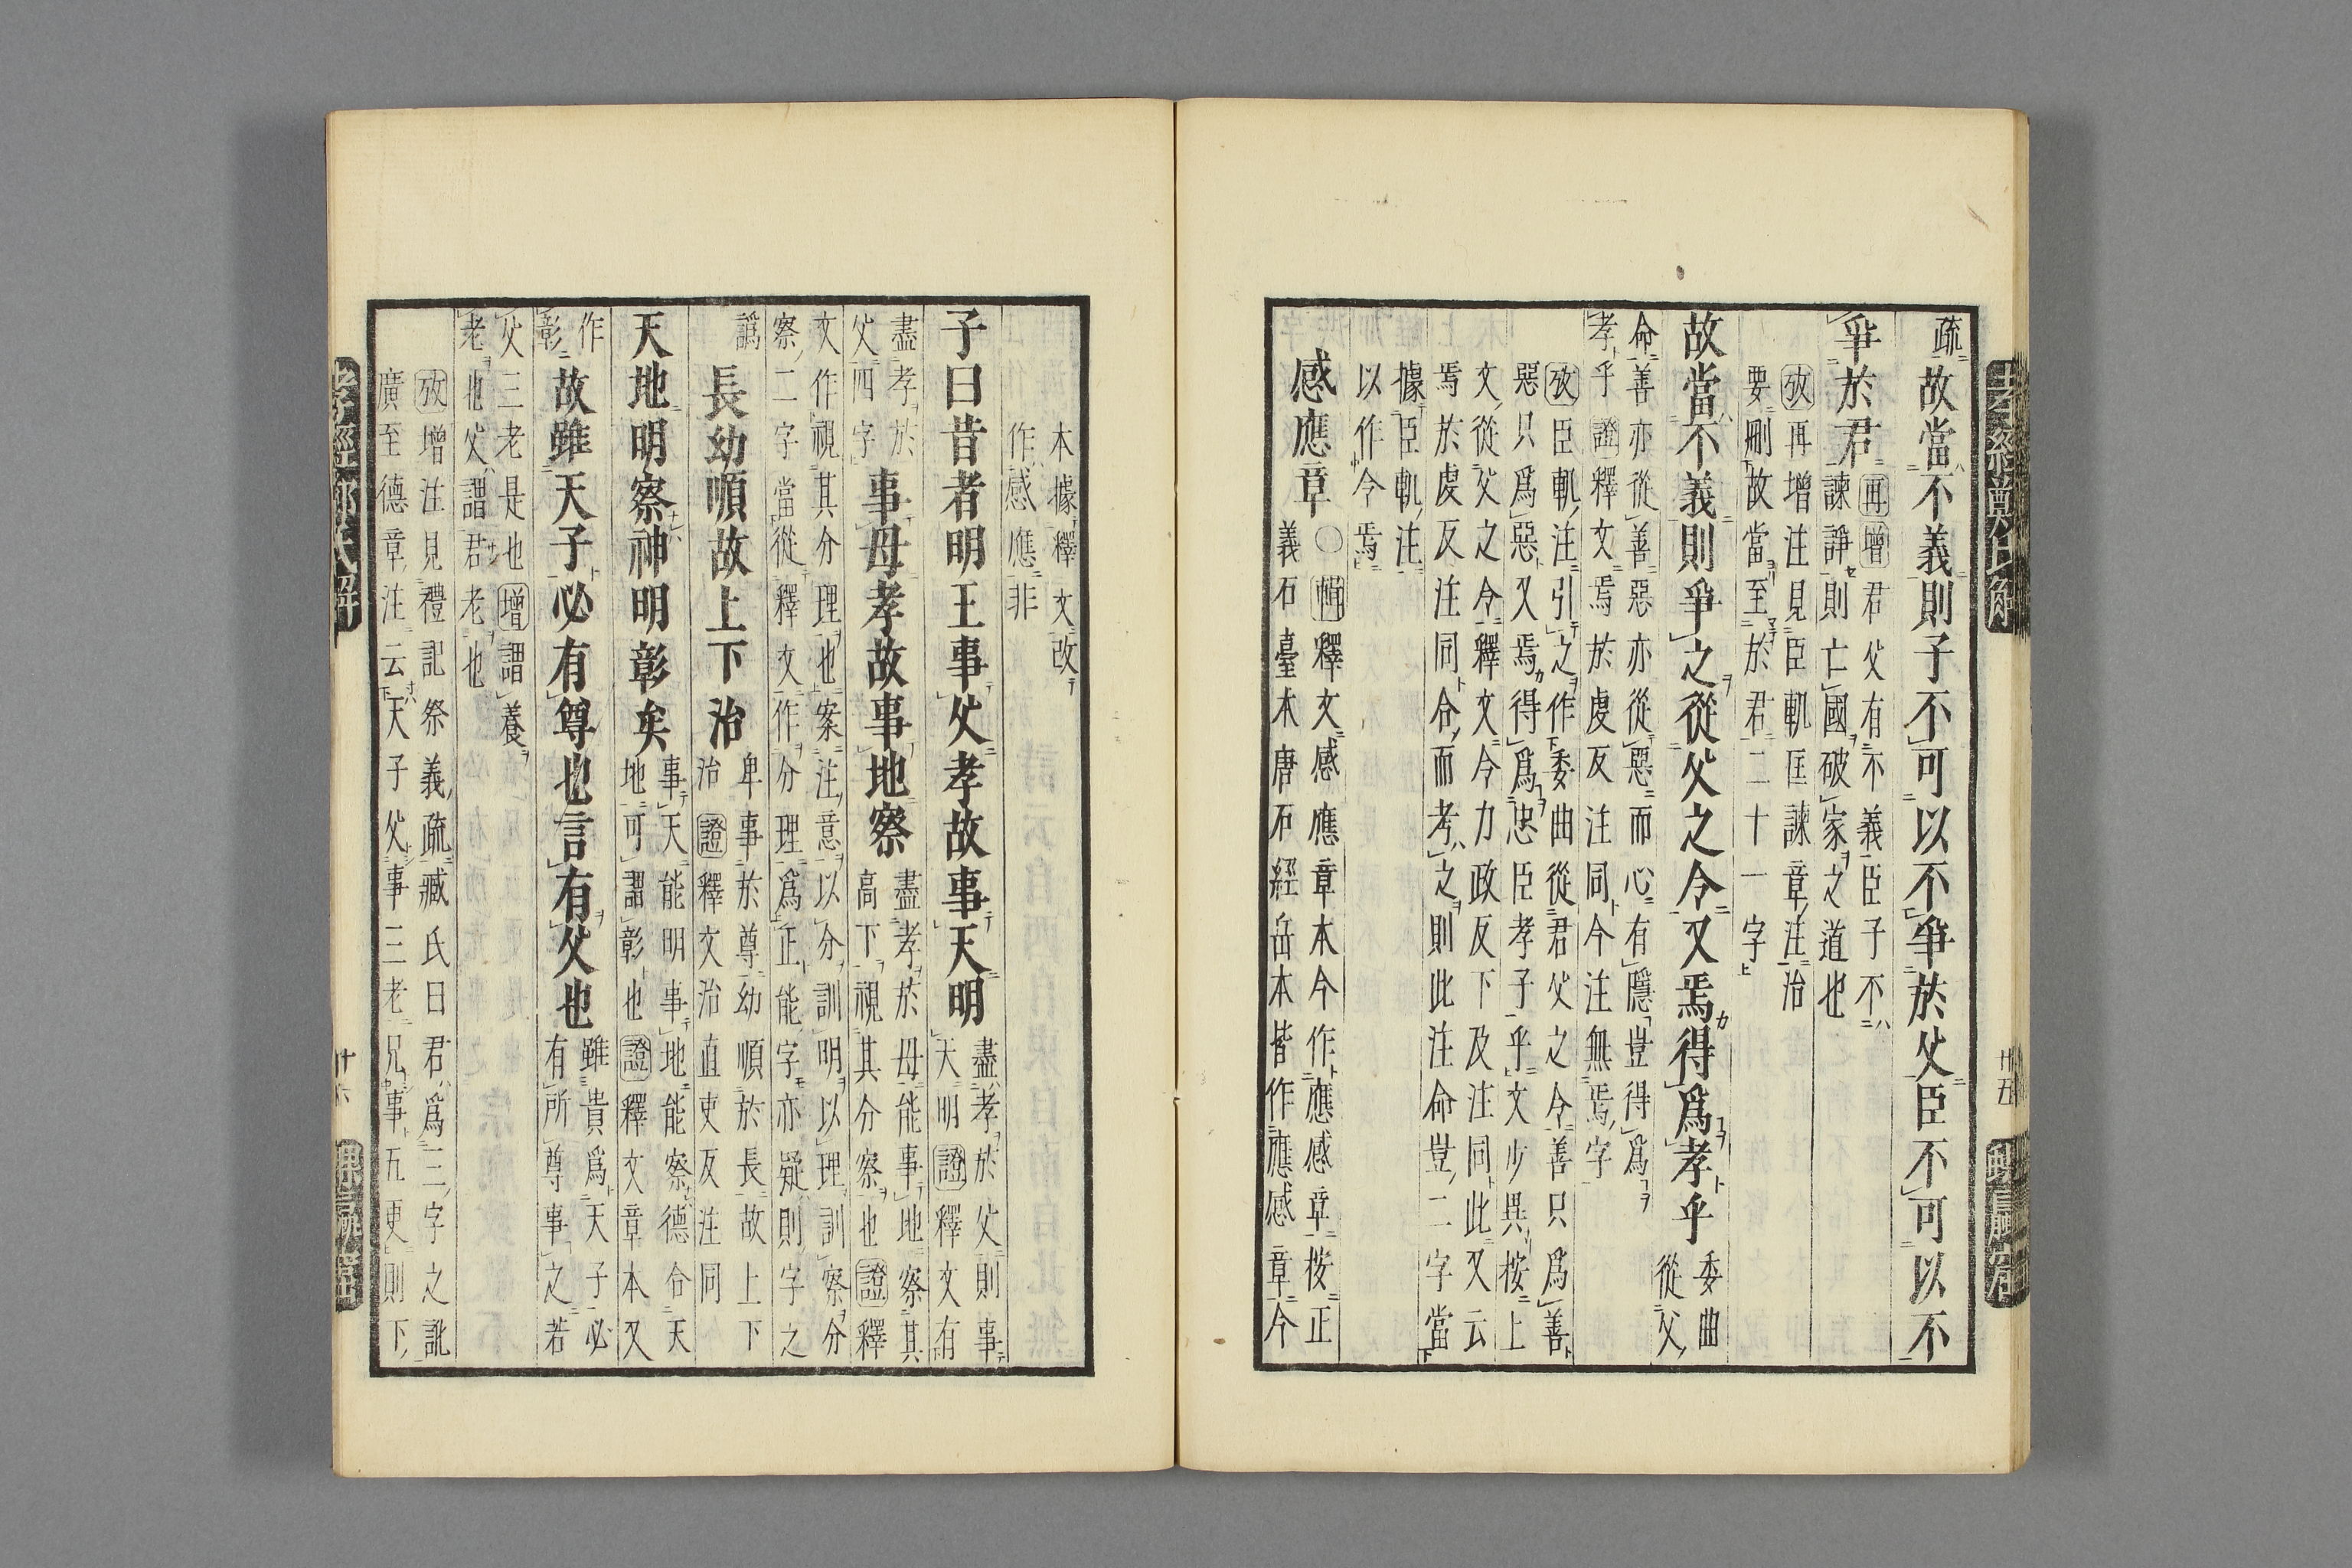 疏故當不義則子不可以不爭於父臣不可以不
爭於君
再增君父有不義臣子不
諫諍則亡國破家之道也
攷再增注見臣軌匡諫章注治
要刪故當至於君二十一字
故當不義則爭之從父之令又焉得爲孝乎
委曲
從父
命善亦從善惡亦從惡而心有隱豈得爲
孝乎證釋文焉於虔反注同今注無焉字
攷臣軌注引之作委曲從君父之令善只爲善
惡只爲惡又焉得爲忠臣孝子乎文少異按上
文從父之令釋文令力政反下及注同此又云
焉於虔反注同合而考之則此注命豈二字當
據臣軌注
以作令焉
感應章
○輯釋文感應章本今作應感章按正
義石臺本唐石經岳本皆作應感章今
孝經鄭氏解
廿五
本據釋文改
作感應非
子曰昔者明王事父孝故事天明
盡孝於父則事
天明證釋文有
盡孝於
父四字
事母孝故事地察
盡孝於母能事地察其
高下視其分察也證釋
文作視其分理也案注意以分訓明以理訓察分
察二字當從釋文作分理爲正能字亦疑則字之
譌
長幼順故上下治
卑事於尊幼順於長故上下
治證釋文治直吏反注同
天地明察神明彰矣
事天能明事地能察德合天
地可謂彰也證釋文章本又
作
彰
故雖天子必有尊也言有父也
雖貴爲天子必
有所尊事之若
父三老是也增謂養
老也父謂君老也
攷增注見禮記祭義疏臧氏曰君爲三字之訛
廣至德章注云天子父事三老兄事五更則下
孝經鄭氏解
廿六